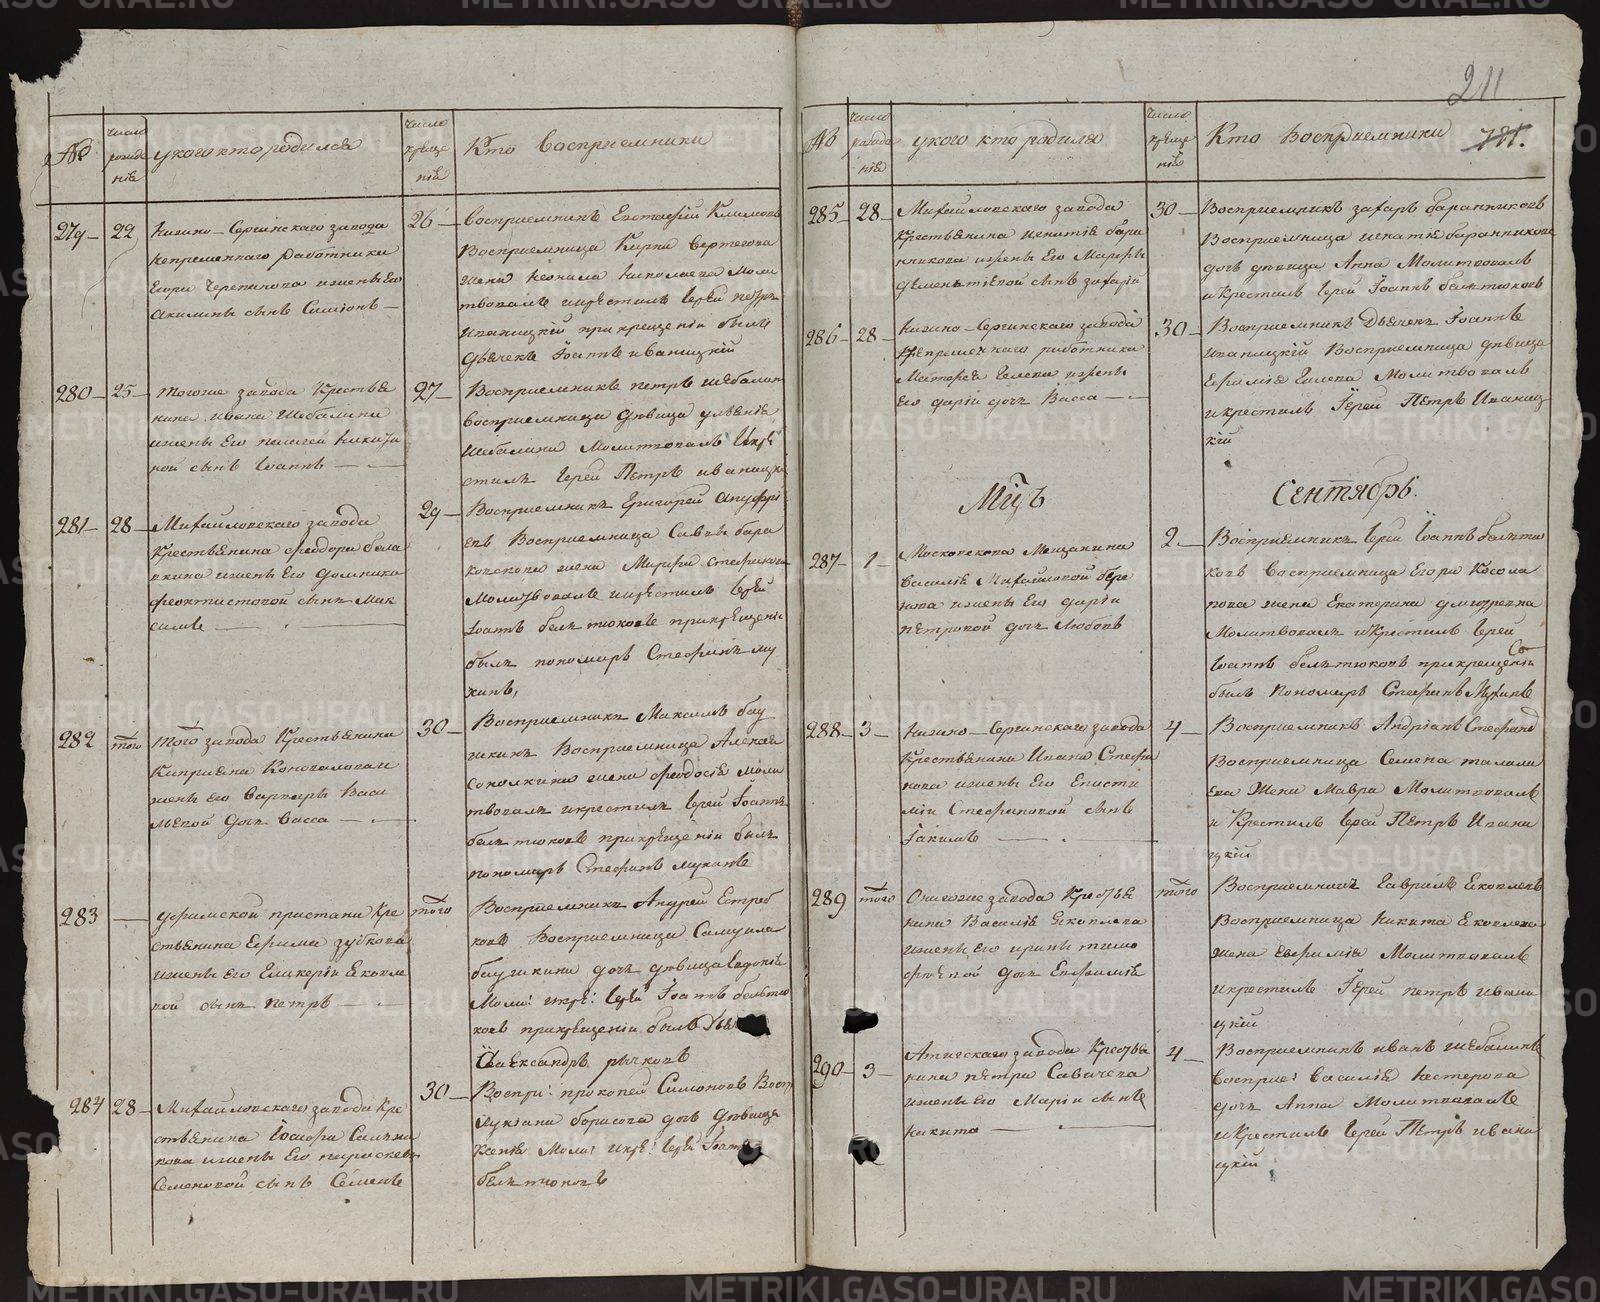 211
№
число рожде нія
у кого кто родился
число креще нія
Кто восприемники
279 22
Нижно-Сергинскаго завода
непременнаго работника
Егора Черепанова и жены Его
Акилины сынъ Симіонъ
26
Восприемникъ Евстафій Климовъ
Восприемница Карпа Вертегова
жена Неонила Николаева Моли
твовалъ и крѣстилъ Іерей Петръ
Иваницкій при крещеніи былъ
Дьячекъ Іоаннъ Иваницкій
280 25
тогоже завода Крестья
нина Ивана Шебалина
и жены Его Пелагеи Никити
ной сынъ Іоаннъ
27
Восприемникъ Петръ Шебалин
Восприемница дѣвица
Шебалина Молитвовалъ и крѣ
стилъ Іерей Пѣтръ Иваницк
281 28
Михайловскаго завода
Крестьянина Феодора
жены Его Домники
Феоктистовой сынъ Мак
симъ
29
Восприемникъ Григорей Ануфрі
евъ Восприемница Савы Бара
ковскова жена Марфа Стефанова
Молитвовалъ и крѣстилъ Іерей
Іоаннъ Бельтюковъ при крѣщеніи
былъ пономарь Стефанъ Му
хинъ,
282 того
того завода Крестьянина
Киприяна Коновалова и
жены Его Варвары Васи
льевой дочь Васса
30
Восприемникъ Максимъ Бау
шкинъ Восприемница Алексея
Соколкина жена Феодосія Моли
твовалъ и крестилъ Іерей Іоаннъ
Бельтюковъ при крѣщеніи былъ
пономарь Стефанъ Мухинъ
283
Уфимской пристани Кре
стьянина Ефима Зубкова
и жены Его Гликеріи Яковле
вой сынъ Петръ
того
Восприемникъ Андрей Ястреб
ковъ Восприемница Самуила
Баушкина дочь дѣвица Евдокія
Моли: и крѣ: Іерей Іоаннъ Бельтю
ковъ при крѣщеніи былъ Дья
Александръ Рычковъ
284 28
Михайловскаго завода Кре
стьянина Іосифа
и жены Его Параскевы
Семеновой сынъ Семенъ
30
Воспри: Прокопей Симоновъ Восп
Лукіана Борисова дочь Дѣвица
Ксенія Моли: и крѣ: Іерей Іоаннъ
Бельтюковъ
№
число рожде нія
у кого кто родился
число креще нія
Кто Восприемники
781.
285 28
Михайловскаго завода
Крестьянина Игнатія Бара
нникова и жены Его Марфы
Дѣментіевой сынъ Захарій
30
Восприемникъ Захаръ Баранниковъ
Восприемница Игнатія Баранникова
дочь дѣвица Анна Молитвовалъ
и Крестилъ Іерей Іоаннъ Бельтюковъ
286 28
Нижно-Сергинскаго завода
Непременнаго работника
Матфея Гилева и жены
Его Дарьи дочь Васса
30
Восприемникъ Дьячекъ Іоаннъ
Иваницкій Восприемница дѣвица
Евфимія Гилева Молитвовалъ
и крестилъ Іерей Пѣтръ Иваниц
кій
Мцъ Сентябрь.
287 1
Московскова Мещанина
Василія Михайловой Бере
нова и жены Его Даріи
Пѣтровой дочь Любовь
2
Восприемникъ Іерей Іоаннъ Бельтю
ковъ Восприемница Егора Косола
пова жена Екатерина Дмитревна
Молитвовалъ и Крестилъ Іерей
Іоаннъ Бельтюковъ при крещеніи
былъ Пономарь Стефанъ Мухинъ
288 3
Нижно-Сергинскаго завода
Крестьянина Ивана Стефа
нова и жены Его Еписти
міи Стефановой сынъ
Іакимъ
4
Восприемникъ Андріанъ Стефанов
Восприемница Семена Талала
ева Жена Мавра Молитвовалъ
и Крестилъ Іерей Пѣтръ Ивани
цкій
289 того
Онагоже завода Крестья
нина Василія Яковлева
и жены его Ирины Тимо
фѣевой дочь Евфимія
того
Восприемникъ Гаврилъ Яковлевъ
Восприемница Никита Яковлева
жена Евфимія Молитвовалъ
и крестилъ Іерей Петръ Ивани
цкій
290 3
Атигскаго завода Крестья
нина Пѣтра Савичева
и жены Его Маріи сынъ
Никита
4
Восприемникъ Иванъ Шебалинъ
Восприе: Василія Нестерова
дочь Анна Молитвовалъ
и Крестилъ Іерей Пѣтръ Ивани
цкій